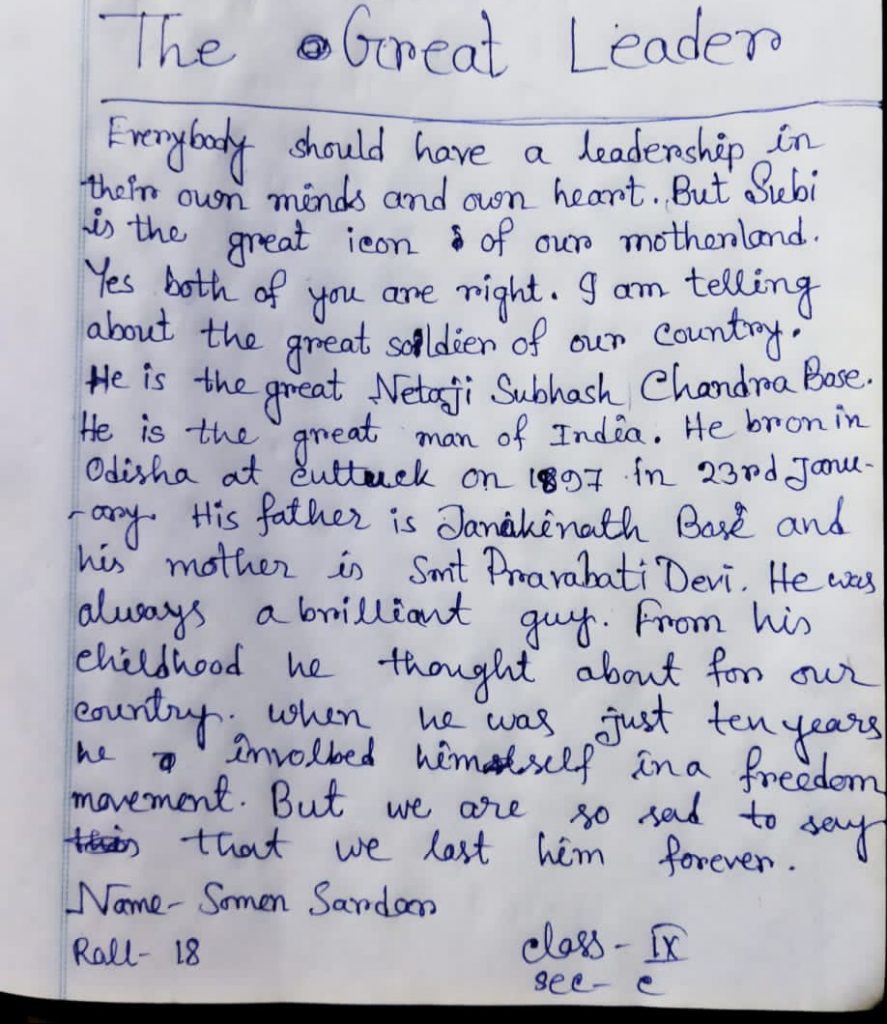 The Great Leader
Everybody should have a leadership in
their own minds and own heart. But Subi
is the great icon of our motherland.
Yes both of you are right. I am telling
about the great soldier of our country.
He is the great Netaji Subhash Chandra Bose.
He is the great man of India. He bron in
Odisha at Cuttuck on 1897 in 23rd Janu-
-ary. His father is Janakinath Base and
his mother is Smt Pravabati Devi. He was
always a brilliant guy. From his
childhood he thought about for our
country. When he was just ten years
he involbed himself in a freedom
movement. But we are so sad to say
that we last him forever.
Name- Somen Sardar
Roll- 18 class - IX
sec- c